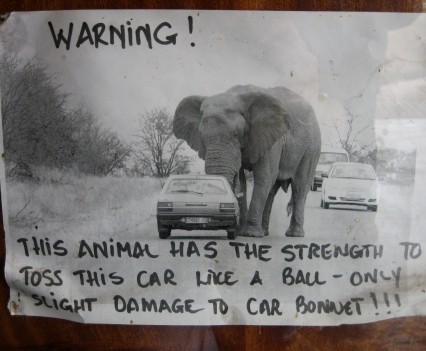 WARNING!
THIS ANIMAL HAS THE STRENGTH TO
TOSS THIS CAR LIKE A BALL - ONLY
SLIGHT DAMAGE TO CAR BONNET!!!